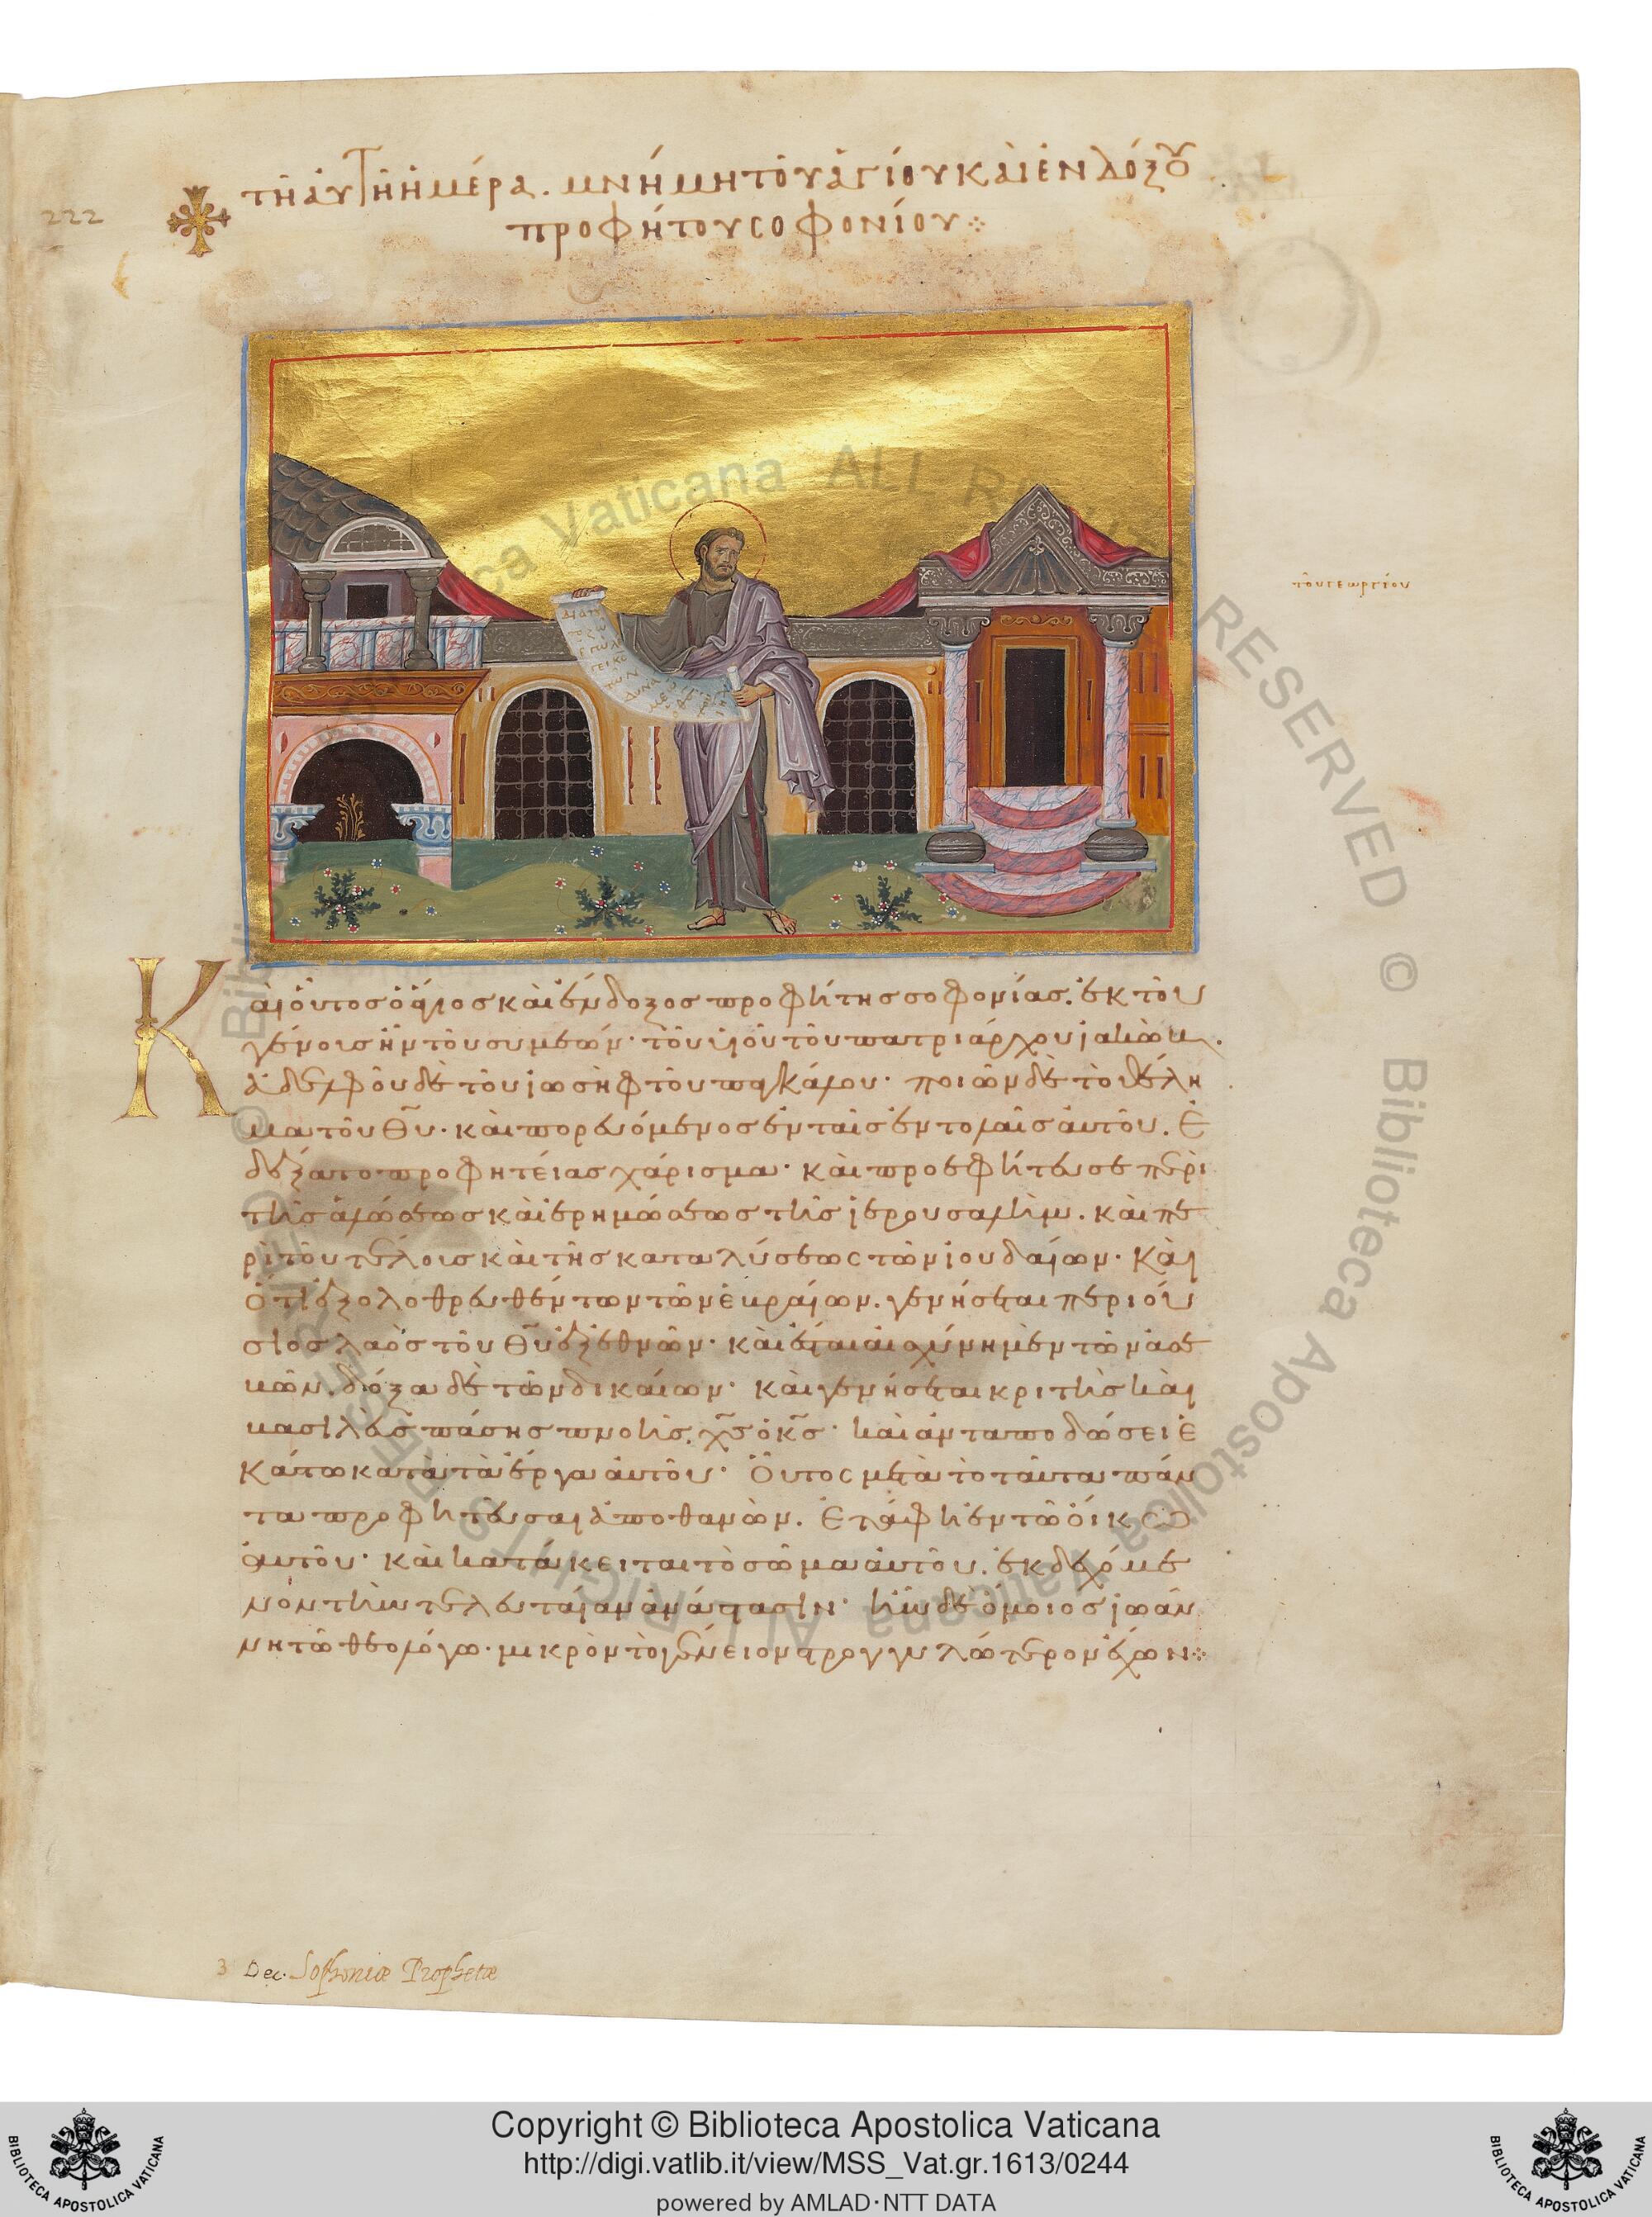 222
τῆ ἀυτῆ ἡμέρα. μνήμη τοῦ ἁγίου καὶ ἐνδόξου
προφήτου σοφονίου
τοῦ σεμβείου
Καὶ οὗτος ὁ ἅγιος καὶ ἔνδοξος προφήτης σοφονίας. ἐκ τοῦ
γένους ἦν τοῦ συμεών· τοῦ υἱοῦ τοῦ πατριάρχου ἰακώβ.
ἀδελφοῦ δὲ τοῦ ἰωσὴφ τοῦ παγκάλου· ποιῶν δὲ τὸ θέλη
μα τοῦ Θῦ· καὶ πορευόμενος ἐν ταῖς ἐντολαῖς αὐτοῦ. Ἐ
δέξατο προφητείας χάρισμα· καὶ προεφήτευσε περὶ
τῆς ἁλώσεως καὶ ἐρημώσεως τῆς ἱερουσαλήμ. καὶ πε
ρὶ τοῦ τέλους καὶ τῆς καταλύσεως τῶν ἰουδαίων· Καὶ
ὅτι ἐξολοθρευθέντων τῶν ἑβραίων. γενήσεται περιού
σιος λαὸς τοῦ Θῦ ἐξ ἐθνῶν· καὶ ἔσται αἰσχύνη μὲν τῶν ἀσε
βῶν. δόξα δὲ τῶν δικαίων· καὶ γενήσεται κριτὴς καὶ
βασιλεὺς πάσης πνοῆς, χς ὁ κς· καὶ ἀνταποδώσει ἑ
κάστω κατὰ τὰ ἔργα αὐτοῦ· Οὗτος μετὰ τὸ ταῦτα πάν
τα προφητεῦσαι ἀποθανὼν. Ἐτάφη ἐν τῶ οἴκω
αὐτοῦ· καὶ κατάκειται τὸ σῶμα αὐτοῦ. ἐκδεχόμε
νον τὴν τελευταίαν ἀνάστασιν· ἦν δὲ ὅμοιος ἰωάν
νη τῶ θεολόγω· μικρὸν τὸ γένειον στρογγυλώτερον ἔχων
3 Dec. Sophoniæ Prophetæ
© Biblioteca Apostolica Vaticana ALL RIGHTS RESERVED
Copyright © Biblioteca Apostolica Vaticana
http://digi.vatlib.it/view/MSS_Vat.gr.1613/0244
powered by AMLAD·NTT DATA
BIBLIOTECA APOSTOLICA VATICANA
BIBLIOTECA APOSTOLICA VATICANA